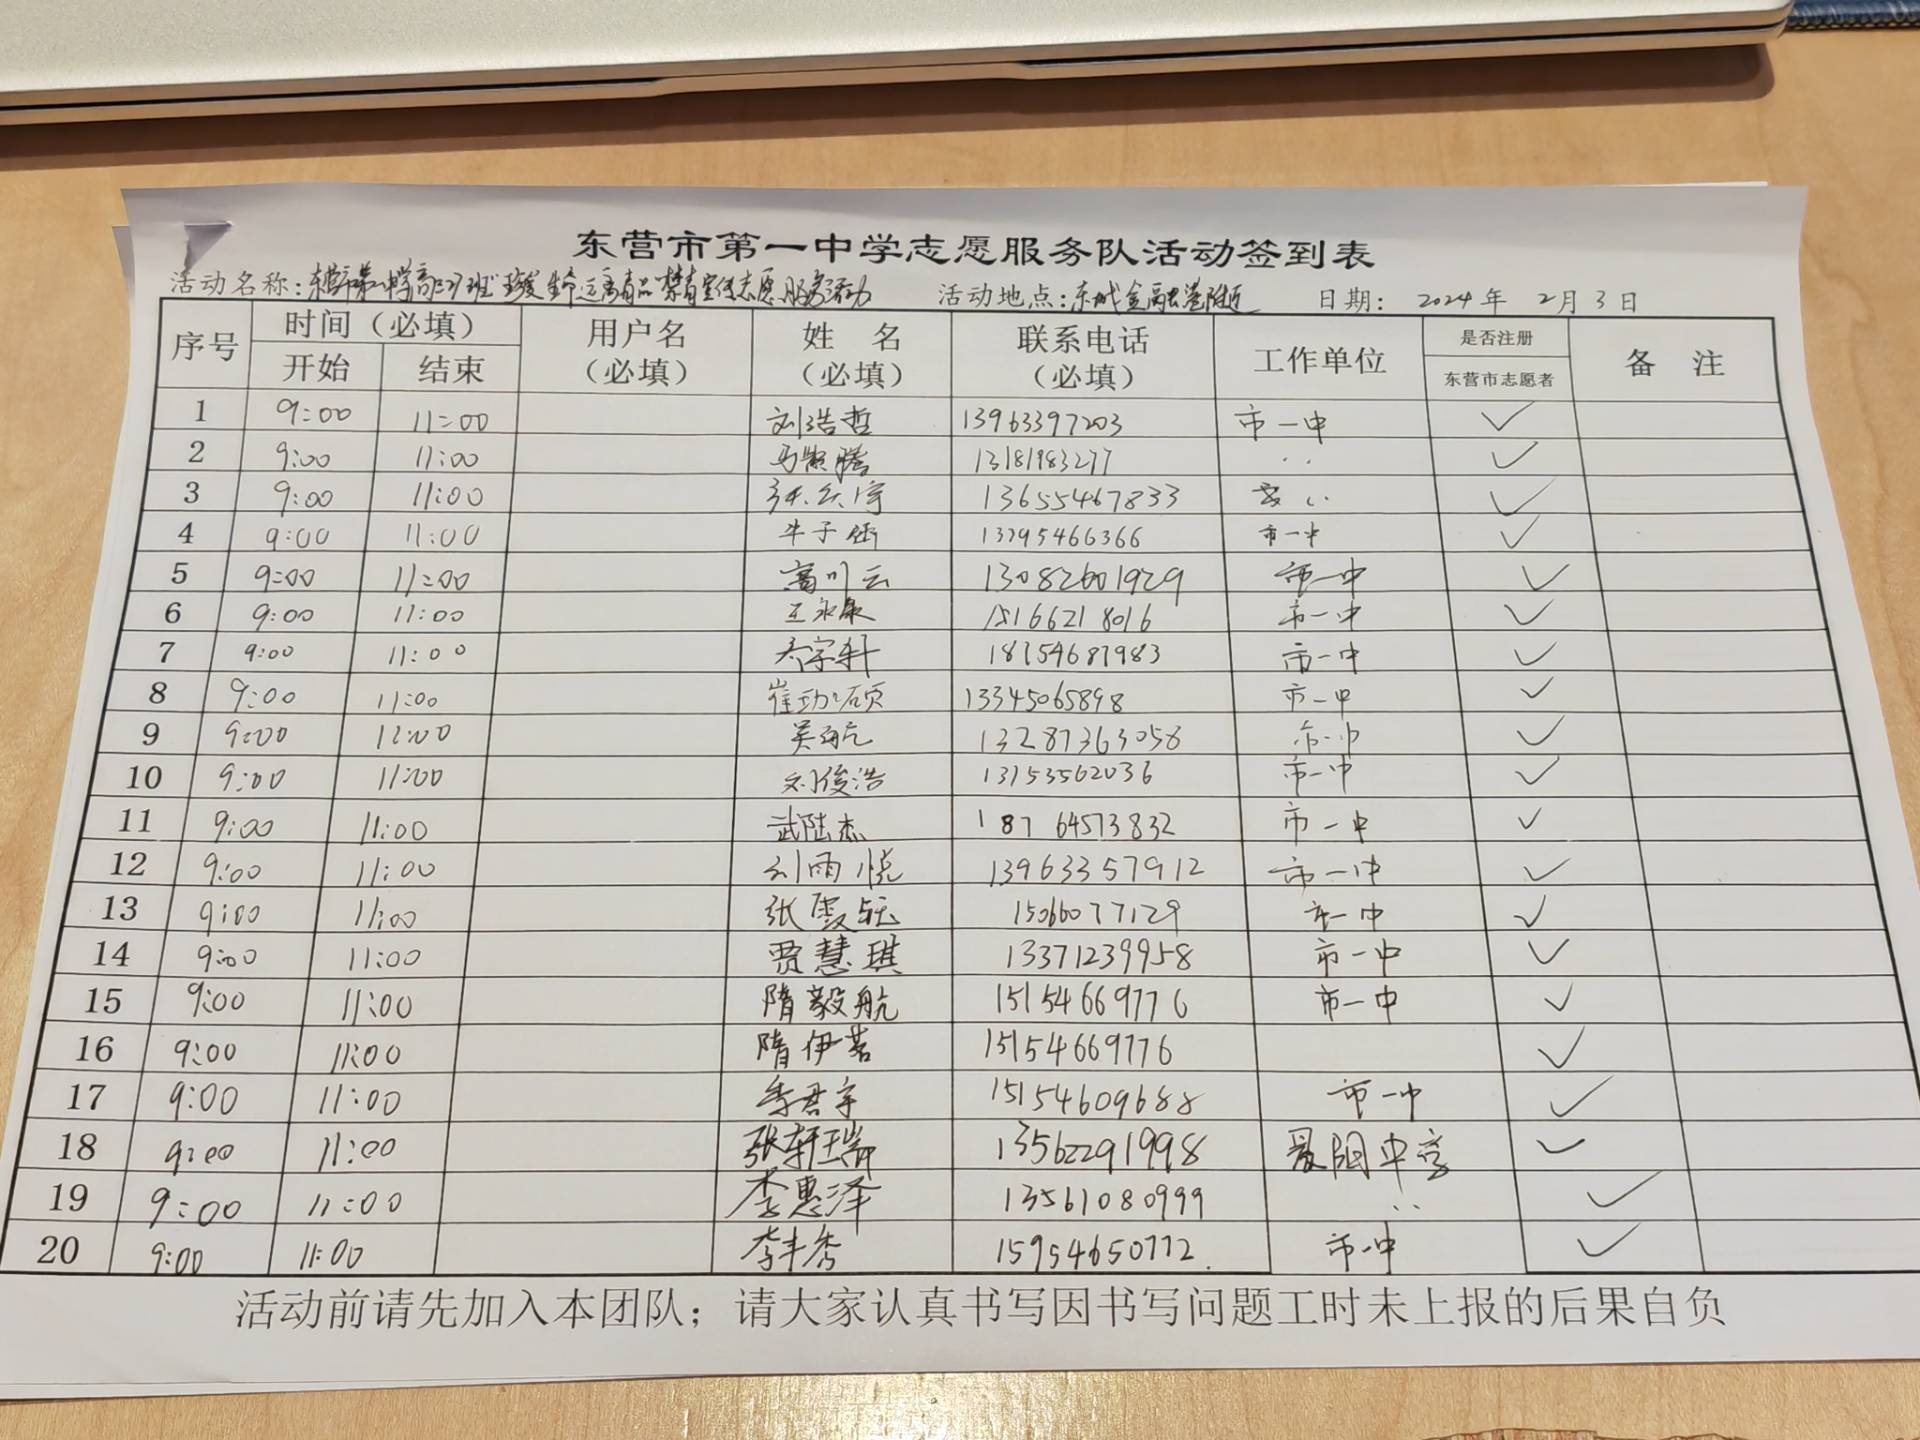 东营市第一中学志愿服务队活动签到表
活动名称：东营市第一中学高二3班"珍爱生命 远离毒品"禁毒宣传志愿服务活动 活动地点：东城金融港附近 日期： 2024 年 2 月 3 日
序号 时间（必填） 用户名 姓 名 联系电话 工作单位 是否注册 备 注
开始 结束 （必填） （必填） （必填） 东营市志愿者
1 9:00 11:00 刘浩哲 13963397203 市一中 ✓
2 9:00 11:00 马 腾 13181983277 〃 ✓
3 9:00 11:00 13655467833 〃 ✓
4 9:00 11:00 牛子 13795466366 市一中 ✓
5 9:00 11:00 高川云 13082601929 市一中 ✓
6 9:00 11:00 王永康 15166218016 市一中 ✓
7 9:00 11:00 乔宇轩 18754687983 市一中 ✓
8 9:00 11:00 崔 硕 13345065898 市一中 ✓
9 9:00 11:00 吴 13287363058 市一中 ✓
10 9:00 11:00 刘俊浩 13153562036 市一中 ✓
11 9:00 11:00 武陆杰 18764573832 市一中 ✓
12 9:00 11:00 刘雨悦 13963357912 市一中 ✓
13 9:00 11:00 张 钰 15066077129 市一中 ✓
14 9:00 11:00 贾慧琪 13371239958 市一中 ✓
15 9:00 11:00 隋毅航 15154669776 市一中 ✓
16 9:00 11:00 隋伊茗 15154669776 ✓
17 9:00 11:00 季君宇 15154609688 市一中 ✓
18 9:00 11:00 张轩瑞 13562291998 景阳中学 ✓
19 9:00 11:00 李惠泽 13561080999 〃 ✓
20 9:00 11:00 李丰秀 15954650772 市一中 ✓
活动前请先加入本团队；请大家认真书写因书写问题工时未上报的后果自负